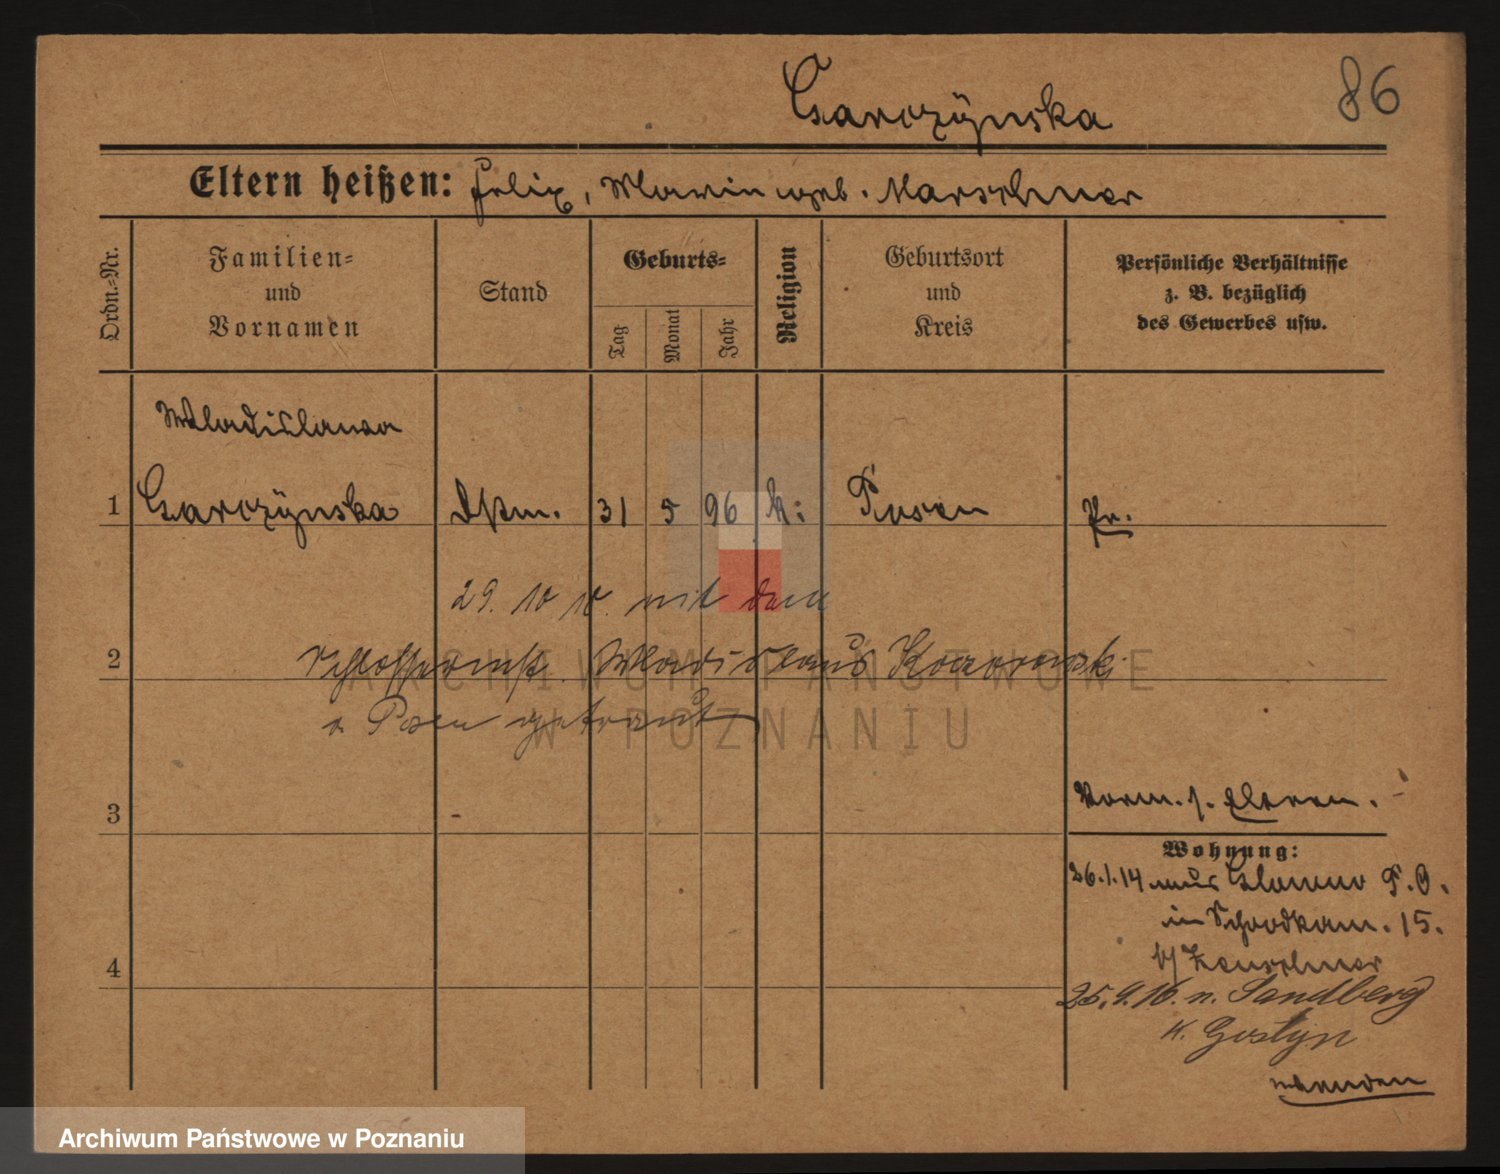 Garczÿnska
86
Eltern heißen: Felix, Marie geb. Marschner
Ordn.-Nr.
Familien-
und
Vornamen
Stand
Geburts-
Tag
Monat
Jahr
Religion
Geburtsort
und
Kreis
Persönliche Verhältnisse
z. B. bezüglich
des Gewerbes usw.
Wladislawa
1
Garczÿnska
31
5
96
k:
Posen
Pr.
29. 10 16. mit dem
2
Schlosser Wladislaus
Posen getraut
3
Vorm. s. Eltern.
Wohnung:
26.1.14 aus Glowno P. O.
in 15.
4
b/
25.9.16. n. Sandberg
K. Gostyn
wenden
ARCHIWUM PAŃSTWOWE
W POZNANIU
Archiwum Państwowe w Poznaniu